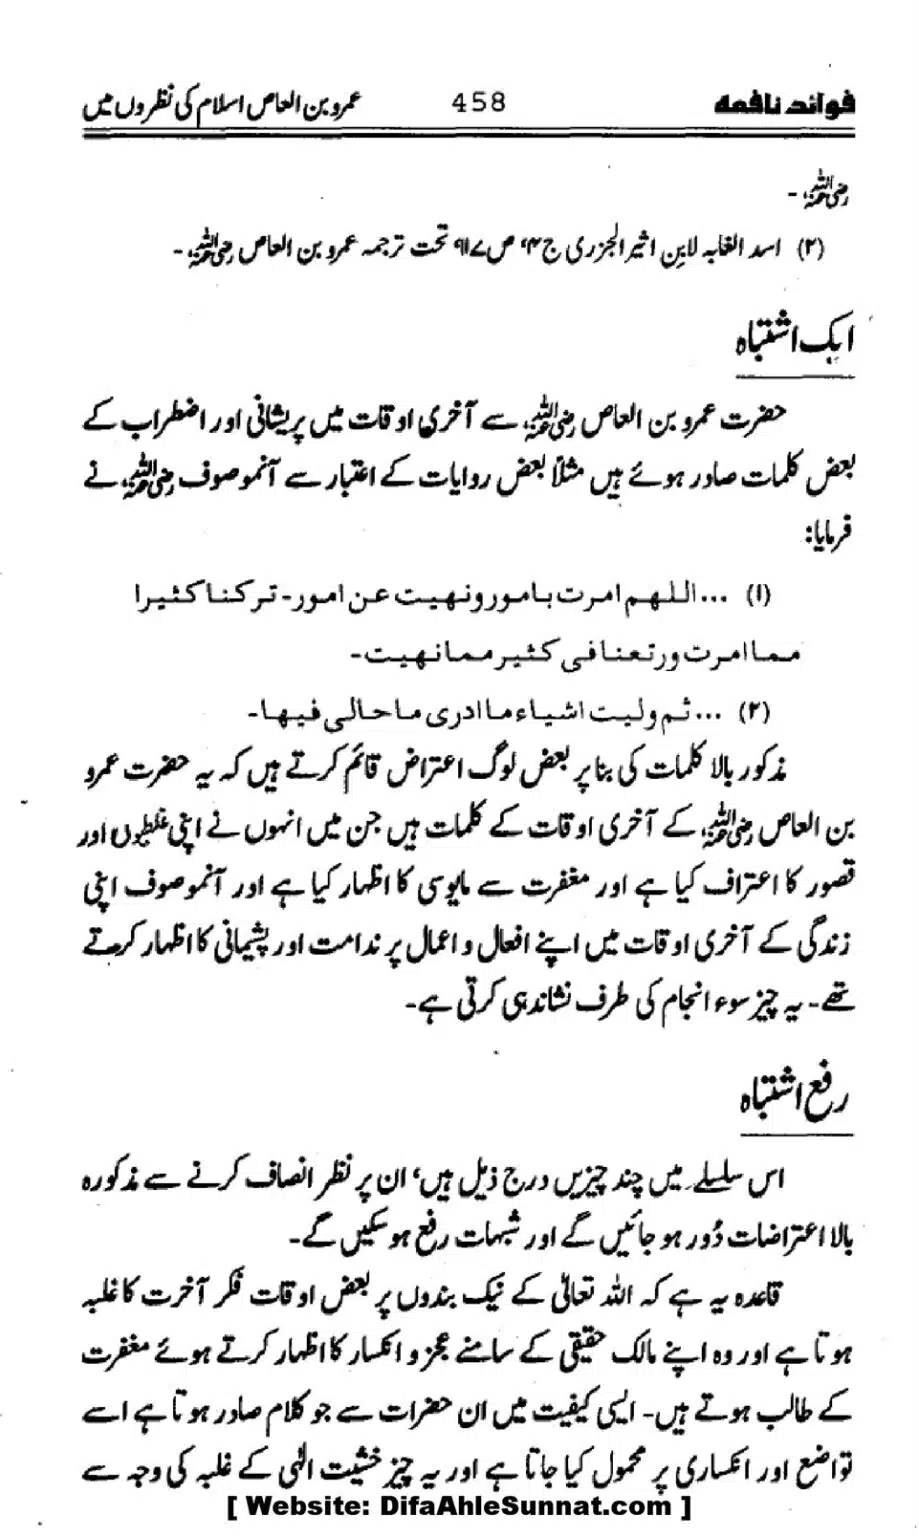 فوائد نافعہ 458 عمرو بن العاص اسلام کی نظروں میں
رضی اللہ عنہ۔
(۲) اسد الغابہ لابن اثیر الجزری ج ۴، ص ۱۱۷ تحت ترجمہ عمرو بن العاص رضی اللہ عنہ۔
ایک اشتباہ
حضرت عمرو بن العاص رضی اللہ عنہ سے آخری اوقات میں پریشانی اور اضطراب کے
بعض کلمات صادر ہوئے ہیں مثلاً بعض روایات کے اعتبار سے آنموصوف رضی اللہ عنہ نے
فرمایا:
(۱) ... اللہم امرت بامور ونہیت عن امور۔ ترکنا کثیرا
مما امرت ورتعنا فی کثیر مما نہیت۔
(۲) ... ثم ولیت اشیاء ما ادری ما حالی فیہا۔
مذکور بالا کلمات کی بنا پر بعض لوگ اعتراض قائم کرتے ہیں کہ یہ حضرت عمرو
بن العاص رضی اللہ عنہ کے آخری اوقات کے کلمات ہیں جن میں انہوں نے اپنی غلطیوں اور
قصور کا اعتراف کیا ہے اور مغفرت سے مایوسی کا اظہار کیا ہے اور آنموصوف اپنی
زندگی کے آخری اوقات میں اپنے افعال و اعمال پر ندامت اور پشیمانی کا اظہار کرتے
تھے۔ یہ چیز سوء انجام کی طرف نشاندہی کرتی ہے۔
رفع اشتباہ
اس سلسلے میں چند چیزیں درج ذیل ہیں، ان پر نظر انصاف کرنے سے مذکورہ
بالا اعتراضات دُور ہو جائیں گے اور شبہات رفع ہو سکیں گے۔
قاعدہ یہ ہے کہ اللہ تعالیٰ کے نیک بندوں پر بعض اوقات فکر آخرت کا غلبہ
ہوتا ہے اور وہ اپنے مالک حقیقی کے سامنے عجز و انکسار کا اظہار کرتے ہوئے مغفرت
کے طالب ہوتے ہیں۔ ایسی کیفیت میں ان حضرات سے جو کلام صادر ہوتا ہے اسے
تواضع اور انکساری پر محمول کیا جاتا ہے اور یہ چیز خشیت الٰہی کے غلبہ کی وجہ سے
[ Website: DifaAhleSunnat.com ]